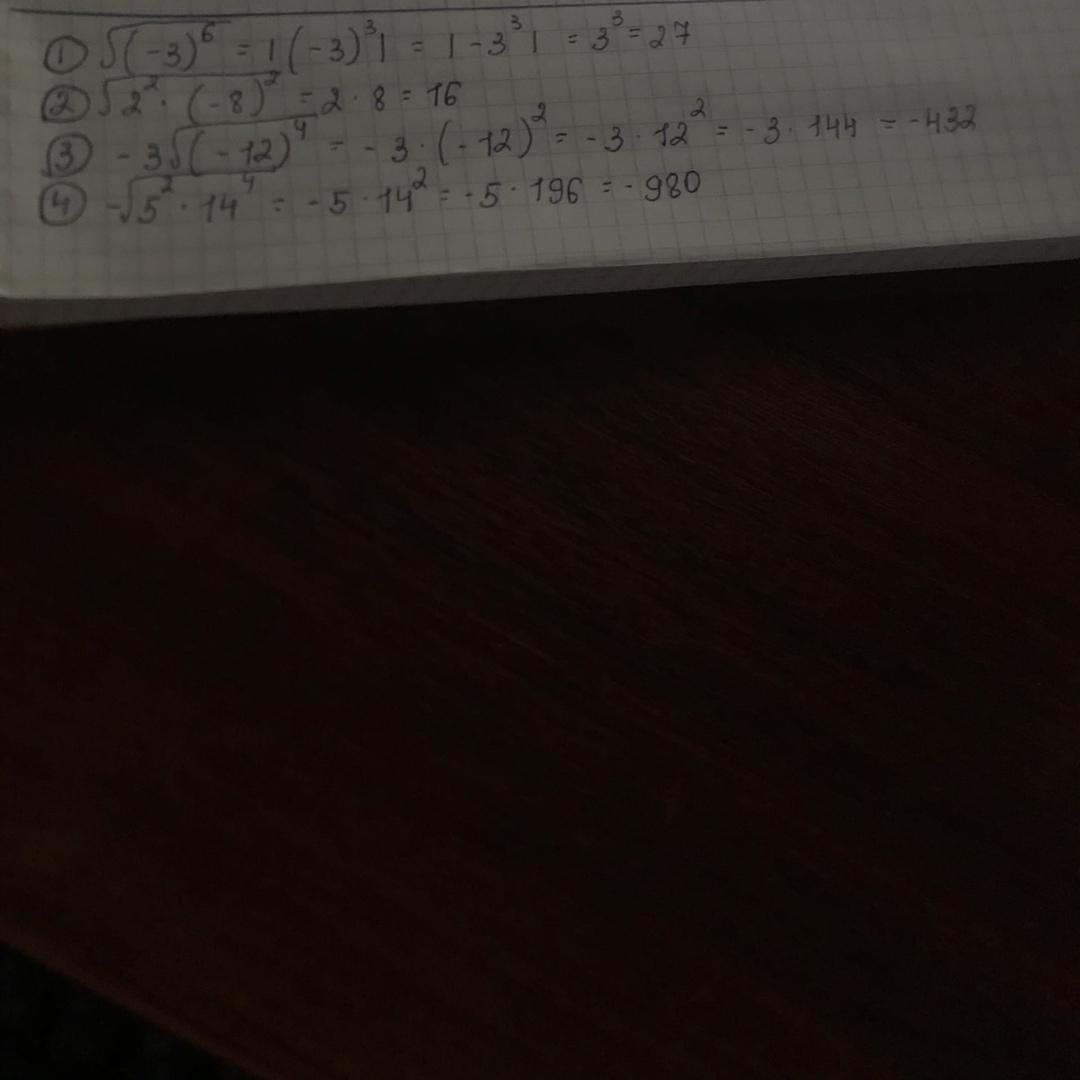 ① √(-3)⁶ = |(-3)³| = |-3³| = 3³ = 27
② √2² · (-8)² = 2 · 8 = 16
③ -3√(-12)⁴ = -3 · (-12)² = -3 · 12² = -3 · 144 = -432
④ -√5² · 14⁴ = -5 · 14² = -5 · 196 = -980